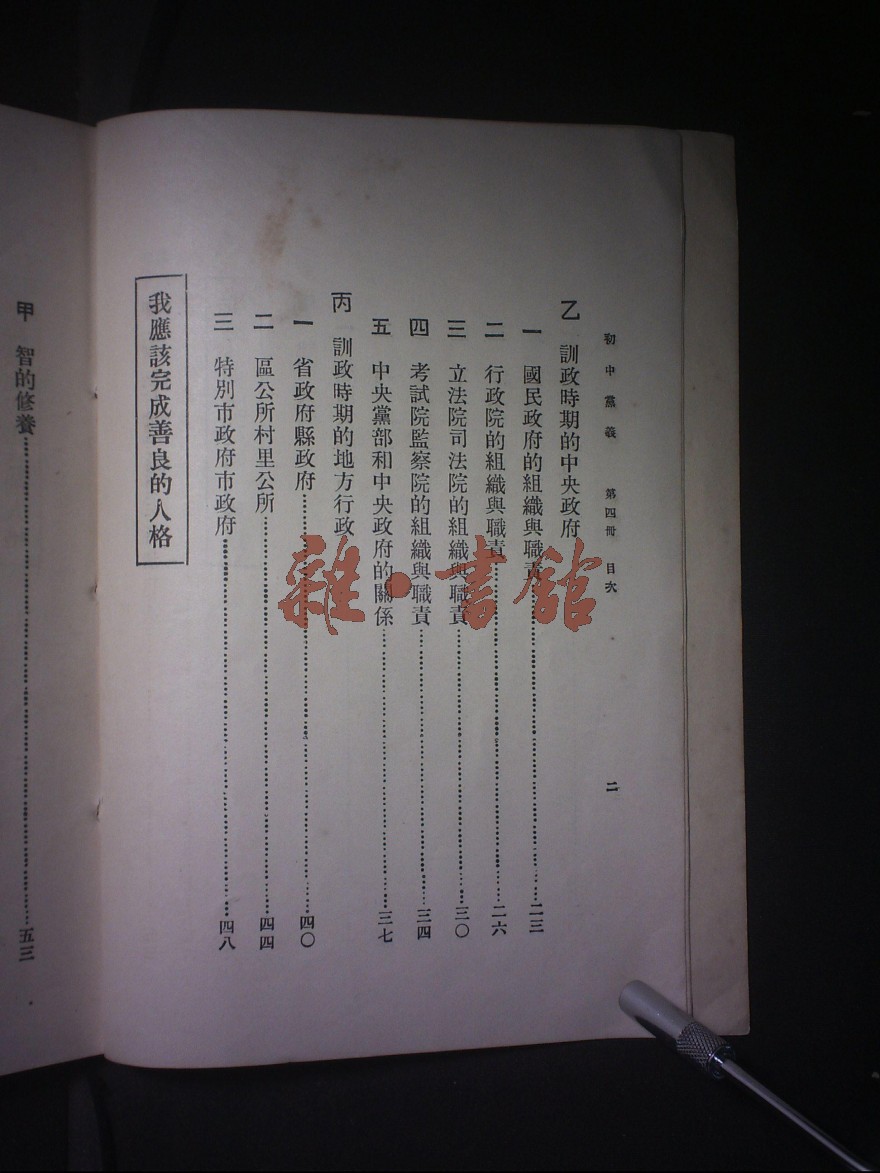 初中黨義 第四冊 目次 二
乙 訓政時期的中央政府
一 國民政府的組織與職責……二三
二 行政院的組織與職責……二六
三 立法院司法院的組織與職責……三〇
四 考試院監察院的組織與職責……三四
五 中央黨部和中央政府的關係……三七
丙 訓政時期的地方行政
一 省政府縣政府……四〇
二 區公所村里公所……四四
三 特別市政府市政府……四八
我應該完成善良的人格
甲 智的修養……五三
雜·書館